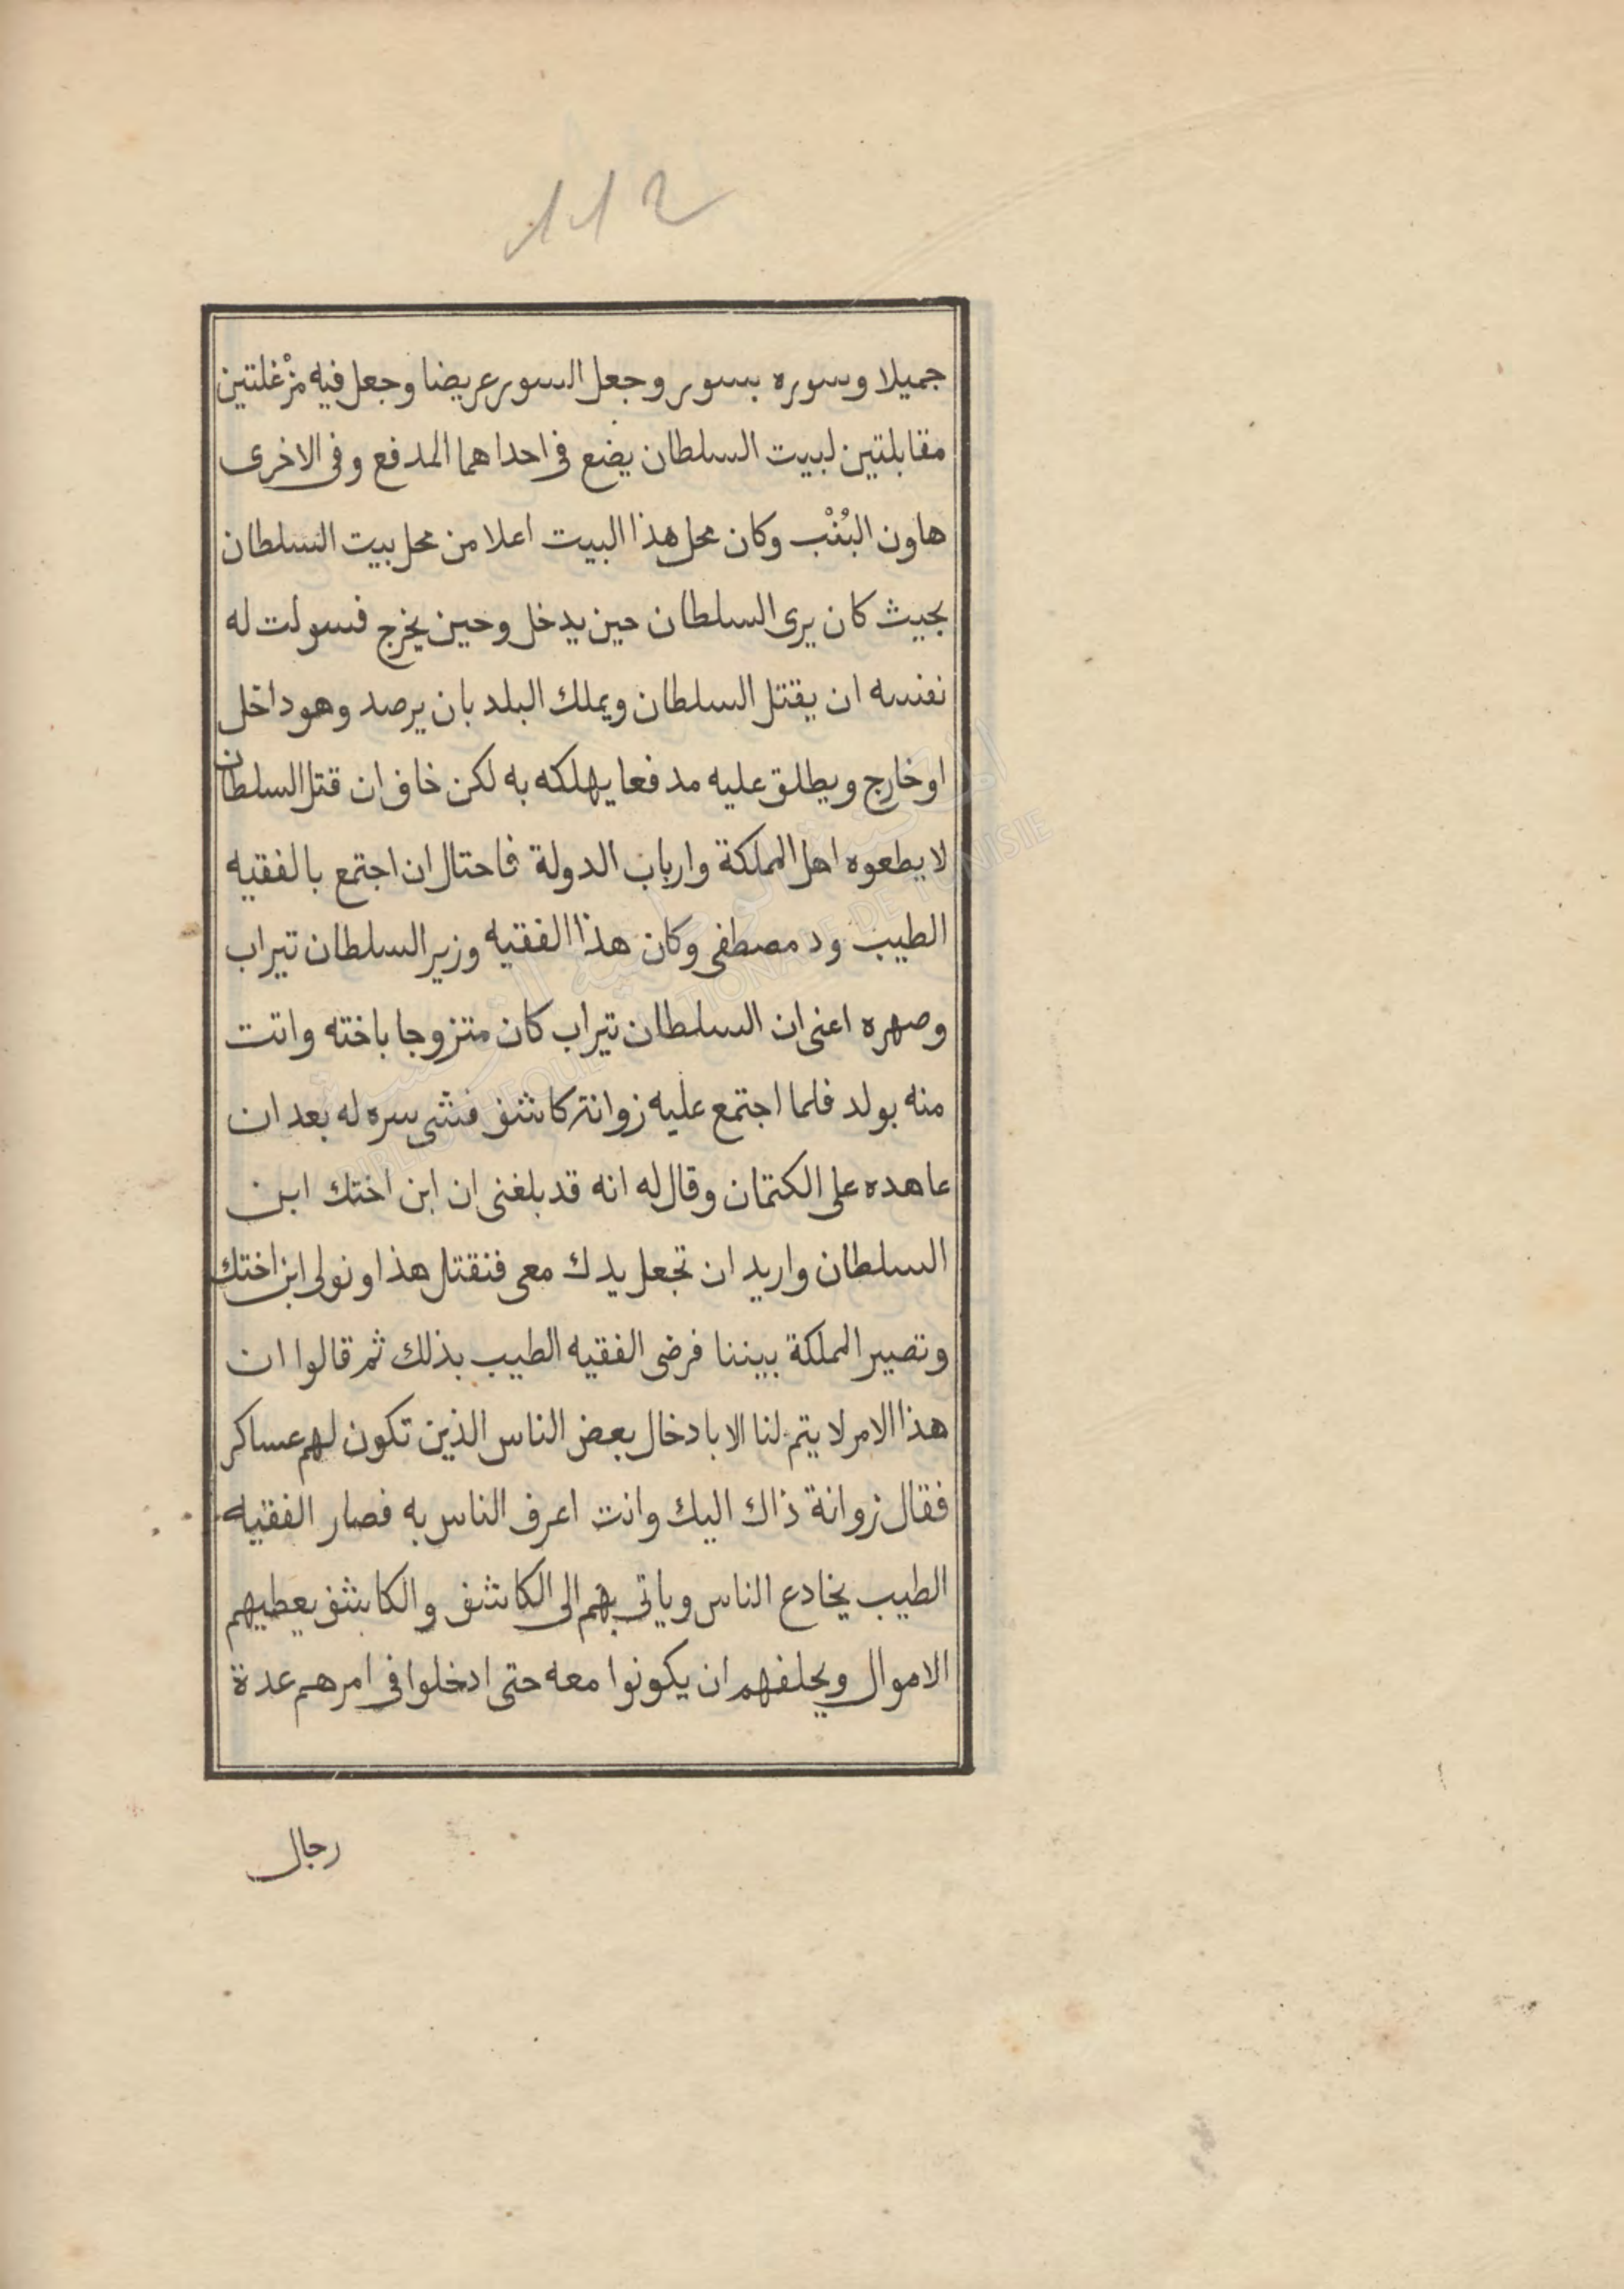 112
جميلا وسوره بسور وجعل السور عريضا وجعل فيه مزْغلتين
مقابلتين لبيت السلطان يضع فى احداهما المدفع وفى الاخرى
هاون البُنْب وكان محل هذا البيت اعلا من محل بيت السلطان
بحيث كان يرى السلطان حين يدخل وحين يخرج فسولت له
نفسه ان يقتل السلطان ويملك البلد بان يرصد وهو داخل
او خارج ويطلق عليه مدفعا يهلكه به لكن خاف ان قتل السلطان
لا يطعوه اهل المملكة وارباب الدولة فاحتال ان اجتمع بالفقيه
الطيب ود مصطفى وكان هذا الفقيه وزير السلطان تيراب
وصهره اعنى ان السلطان تيراب كان متزوجا باخته واتت
منه بولد فلما اجتمع عليه زوانة كاشف فشى سره له بعد ان
عاهده على الكتمان وقال له انه قد بلغنى ان ابن اختك ابن
السلطان واريد ان تجعل يدك معى فنقتل هذا ونولى ابن اختك
وتصير المملكة بيننا فرضى الفقيه الطيب بذلك ثم قالوا ان
هذا الامر لا يتم لنا الا بادخال بعض الناس الذين تكون لهم عساكر
فقال زوانة ذاك اليك وانت اعرف الناس به فصار الفقيه
الطيب يخادع الناس وياتى بهم الى الكاشف والكاشف يعطيهم
الاموال ويحلفهم ان يكونوا معه حتى ادخلوا فى امرهم عدة
رجال
BIBLIOTHEQUE NATIONALE DE TUNISIE